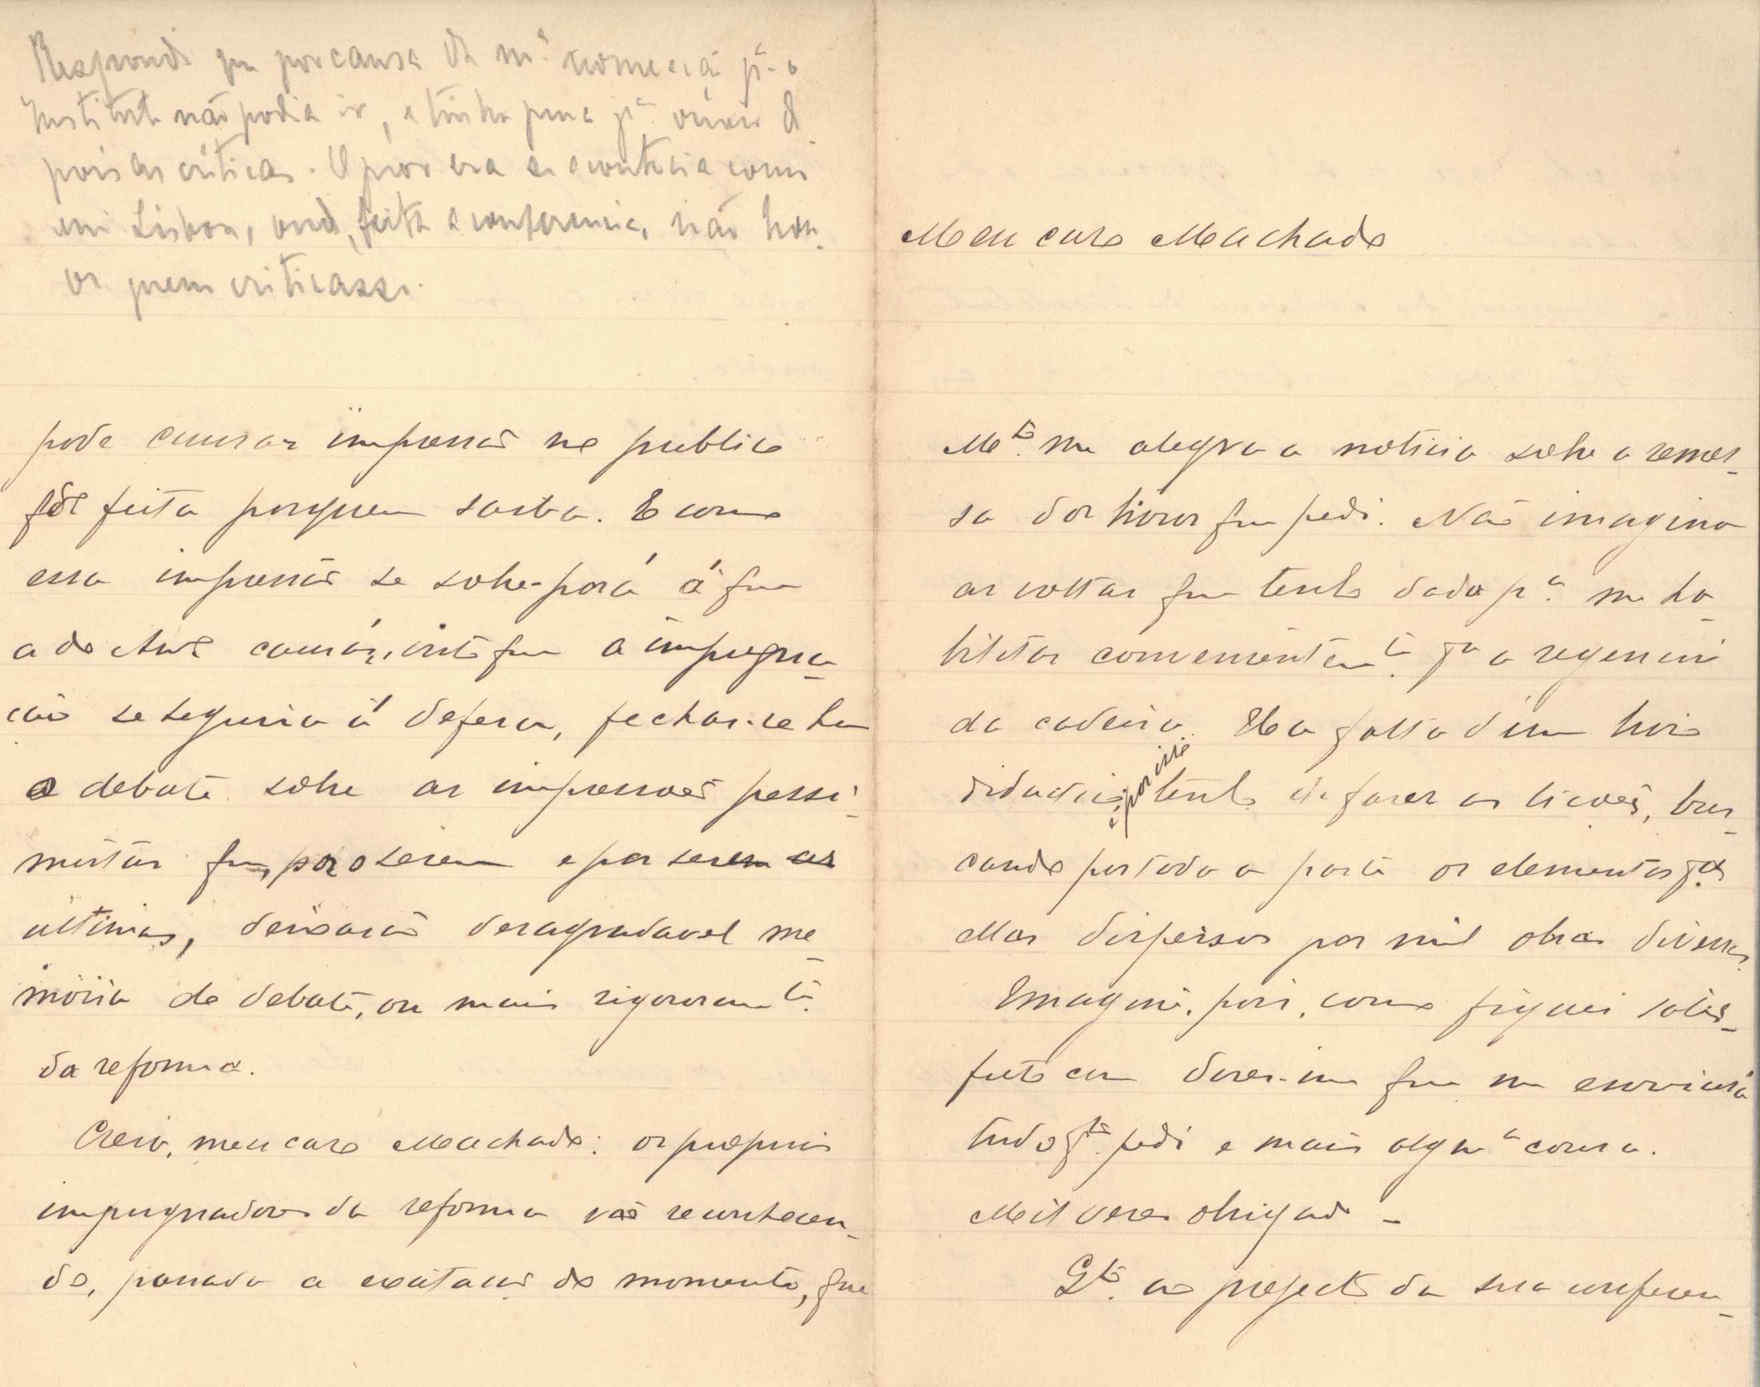 Respondi que por causa da m.ª nomeação p.ª o
Instituto não podia ir, e tinha pena p.ª ouvir de
pois as criticas. O peor era se acontecia como
em Lisboa, onde, feita a conferencia, não hou-
ve quem criticasse.
pode causar impressão no publico
fôr feita por quem saiba. E como
essa impressão se sobre-porá á que
a do Am.º causár, visto que a impugna-
ção se seguirá á defesa, fechar-se ha
o debate sobre as impressoes pessi-
mistas que, por o serem e por serem as
ultimas, deixarão desagradavel me-
moria do debate, ou mais rigorosam.te
da reforma.
Creia, meu caro Machado: os proprios
impugnadores da reforma vão reconhecen-
do, passada a excitação do momento, que
Meu caro Machado
M.to me alegra a noticia sobre a remes-
sa dos livros que pedi. Não imagina
as voltas que tenho dado p.ª me ha-
bilitar convenientem.te p.ª a regencia
da cadeira. Ha falta d'um livro
didactico, e por isso tenho de fazer as licções, bus-
cando por toda a parte os elementos p.ª
ellas dispersos por mil obras diversas.
Imagine, pois, como fiquei satis-
feito com dizer-me que me enviará
tudo q.to pedi e mais algũa cousa.
Mil vezes obrigado –
Q.to ao projecto da sua conferen-